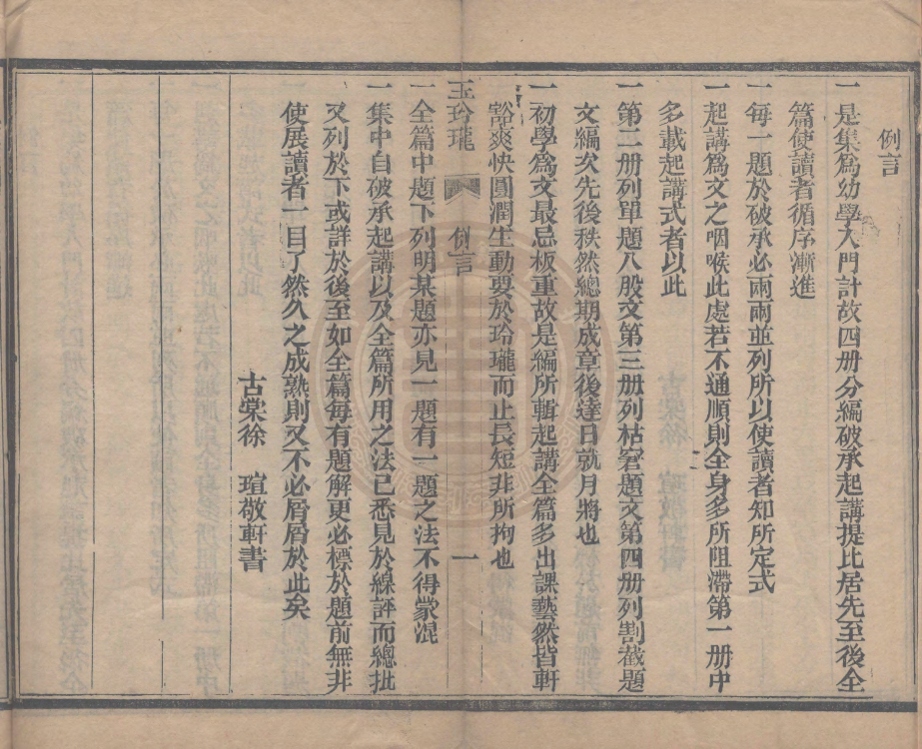 例言
一是集爲幼學入門計故四册分編破承起講提比居先至後全
篇使讀者循序漸進
一每一題於破承必兩兩並列所以使讀者知所定式
一起講爲文之咽喉此處若不通順則全身多所阻滯第一册中
多載起講式者以此
一第二册列單題八股文第三册列枯窘題文第四册列割截題
文編次先後秩然總期成章後達日就月將也
一初學爲文最忌板重故是編所輯起講全篇多出課藝然皆軒
豁爽快圓潤生動要於玲瓏而止長短非所拘也
玉玲瓏 例言 一
一全篇中題下列明某題亦見一題有一題之法不得蒙混
一集中自破承起講以及全篇所用之法已悉見於線評而總批
又列於下或詳於後至如全篇每有題解更必標於題前無非
使展讀者一目了然久之成熟則又不必屑屑於此矣
古棠徐 瑄敬軒書